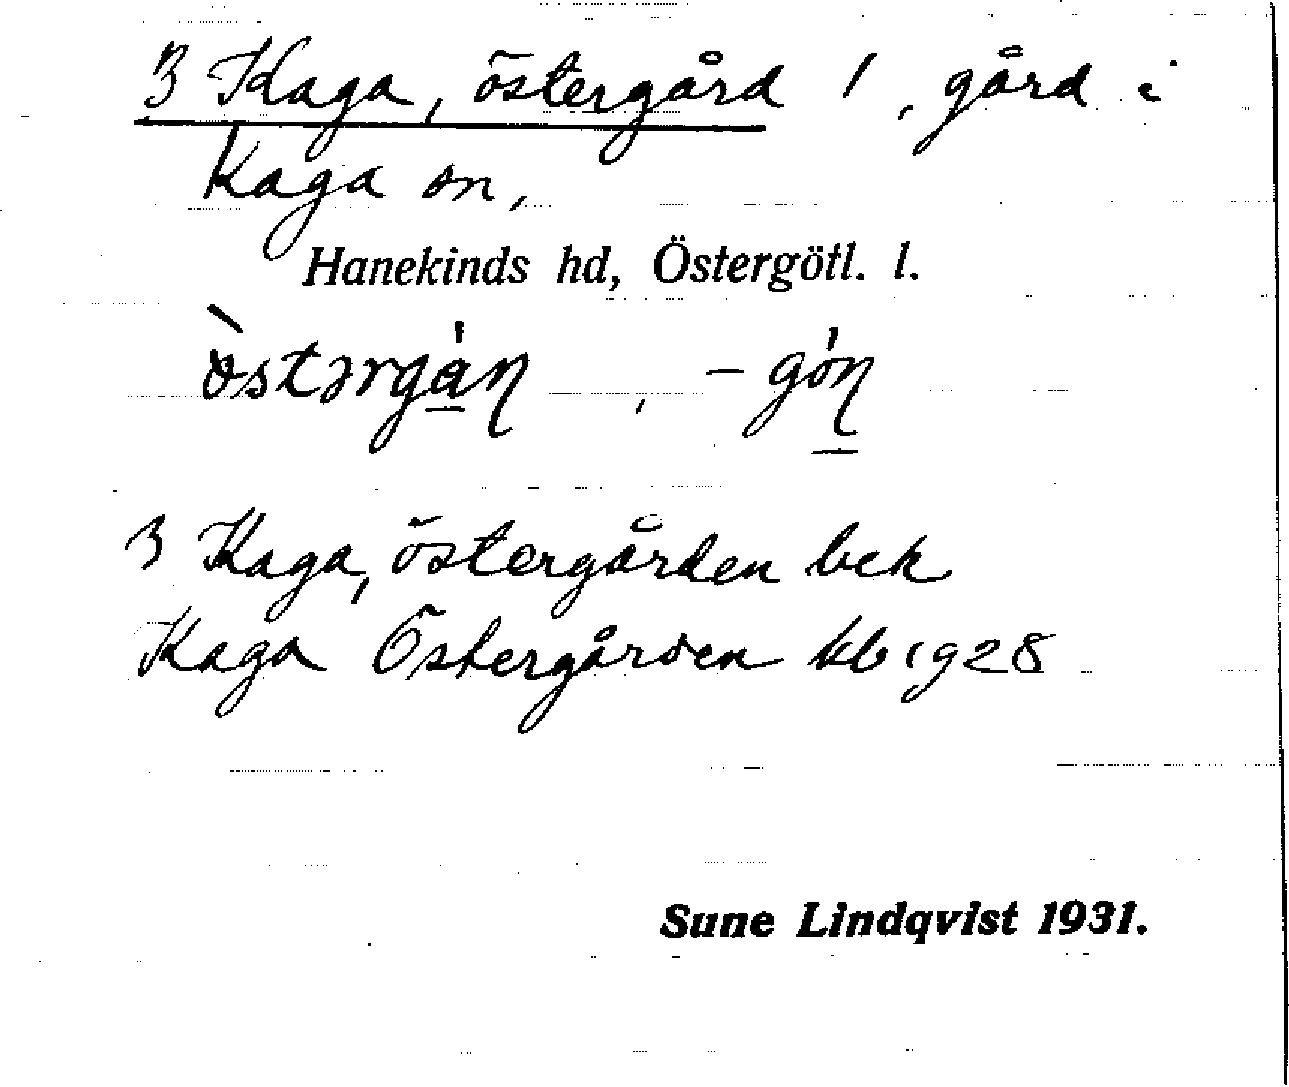 3 Kaga, östergård 1, gård i
Kaga sn,
Hanekinds hd, Östergötl. l.
östərgán , – gón
3 Kaga, östergården bek
Kaga Östergården kb 1928
Sune Lindqvist 1931.